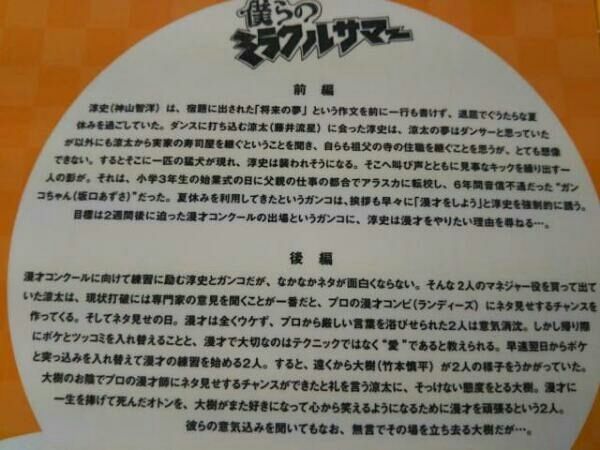 僕らの
ミラクルサマー
前編
淳史(神山智洋)は、宿題に出された「将来の夢」という作文を前に一行も書けず、退屈でぐうたらな夏
休みを過ごしていた。ダンスに打ち込む涼太(藤井流星)に会った淳史は、涼太の夢はダンサーと思っていた
が以外にも涼太から実家の寿司屋を継ぐということを聞き、自らも祖父の寺の住職を継ぐことを思うが、とても想像
できない。するとそこに一匹の猛犬が現れ、淳史は襲われそうになる。そこへ叫び声とともに見事なキックを繰り出す一
人の影が。それは、小学3年生の始業式の日に父親の仕事の都合でアラスカに転校し、6年間音信不通だった“ガン
コちゃん(坂口あずさ)”だった。夏休みを利用してきたというガンコは、挨拶も早々に「漫才をしよう」と淳史を強制的に誘う。
目標は2週間後に迫った漫才コンクールの出場というガンコに、淳史は漫才をやりたい理由を尋ねる…。
後編
漫才コンクールに向けて練習に励む淳史とガンコだが、なかなかネタが面白くならない。そんな2人のマネジャー役を買って出て
いた涼太は、現状打破には専門家の意見を聞くことが一番だと、プロの漫才コンビ(ランディーズ)にネタ見せするチャンスを
作ってくる。そしてネタ見せの日。漫才は全くウケず、プロから厳しい言葉を浴びせられた2人は意気消沈。しかし帰り際
にボケとツッコミを入れ替えることと、漫才で大切なのはテクニックではなく“愛”であると教えられる。早速翌日からボケ
と突っ込みを入れ替えて漫才の練習を始める2人。すると、遠くから大樹(竹本慎平)が2人の様子をうかがっていた。
大樹のお陰でプロの漫才師にネタ見せするチャンスができたと礼を言う涼太に、そっけない態度をとる大樹。漫才に
一生を捧げて死んだオトンを、大樹がまた好きになって心から笑えるようになるために漫才を頑張るという2人。
彼らの意気込みを聞いてもなお、無言でその場を立ち去る大樹だが…。